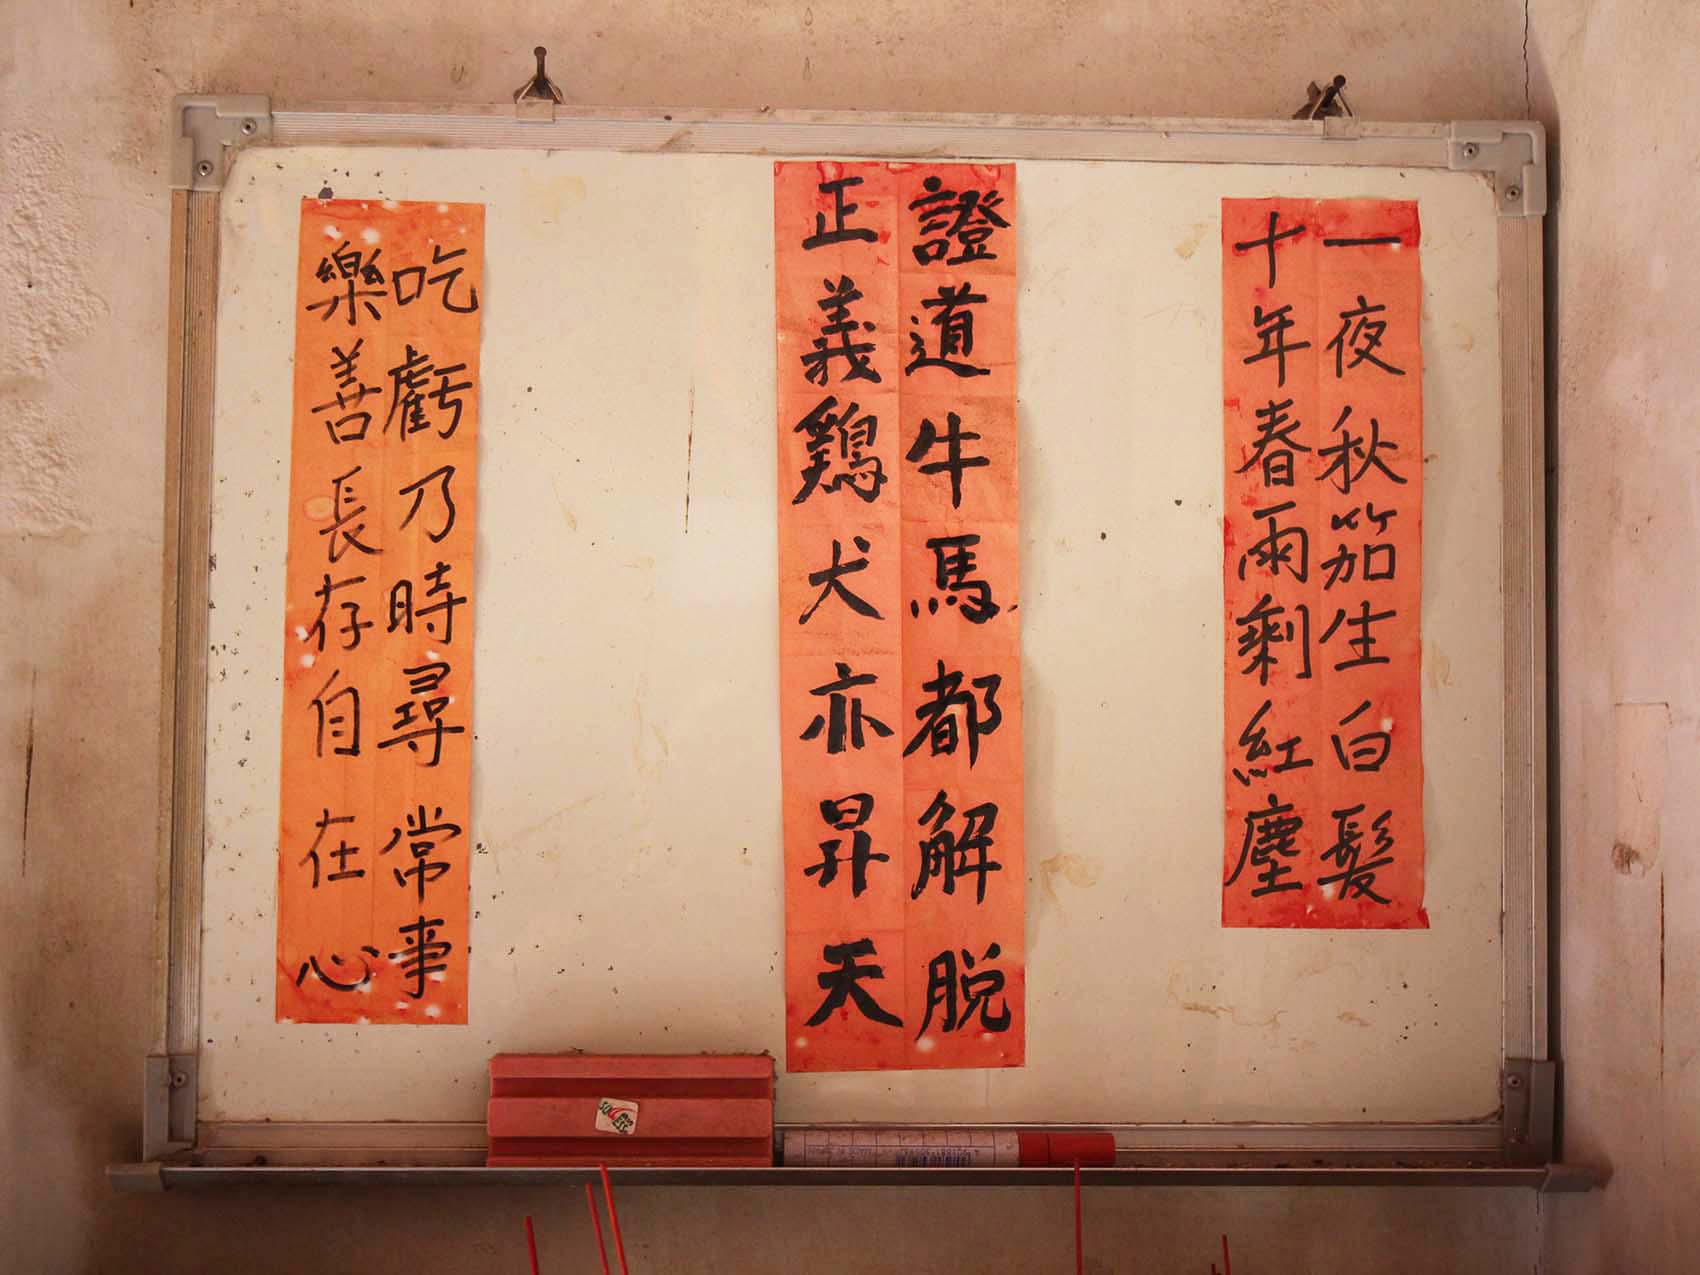 一夜秋笳生白髮
十年春雨剩紅塵
證道牛馬都解脱
正義鷄犬亦昇天
吃虧乃時尋常事
樂善長存自在心